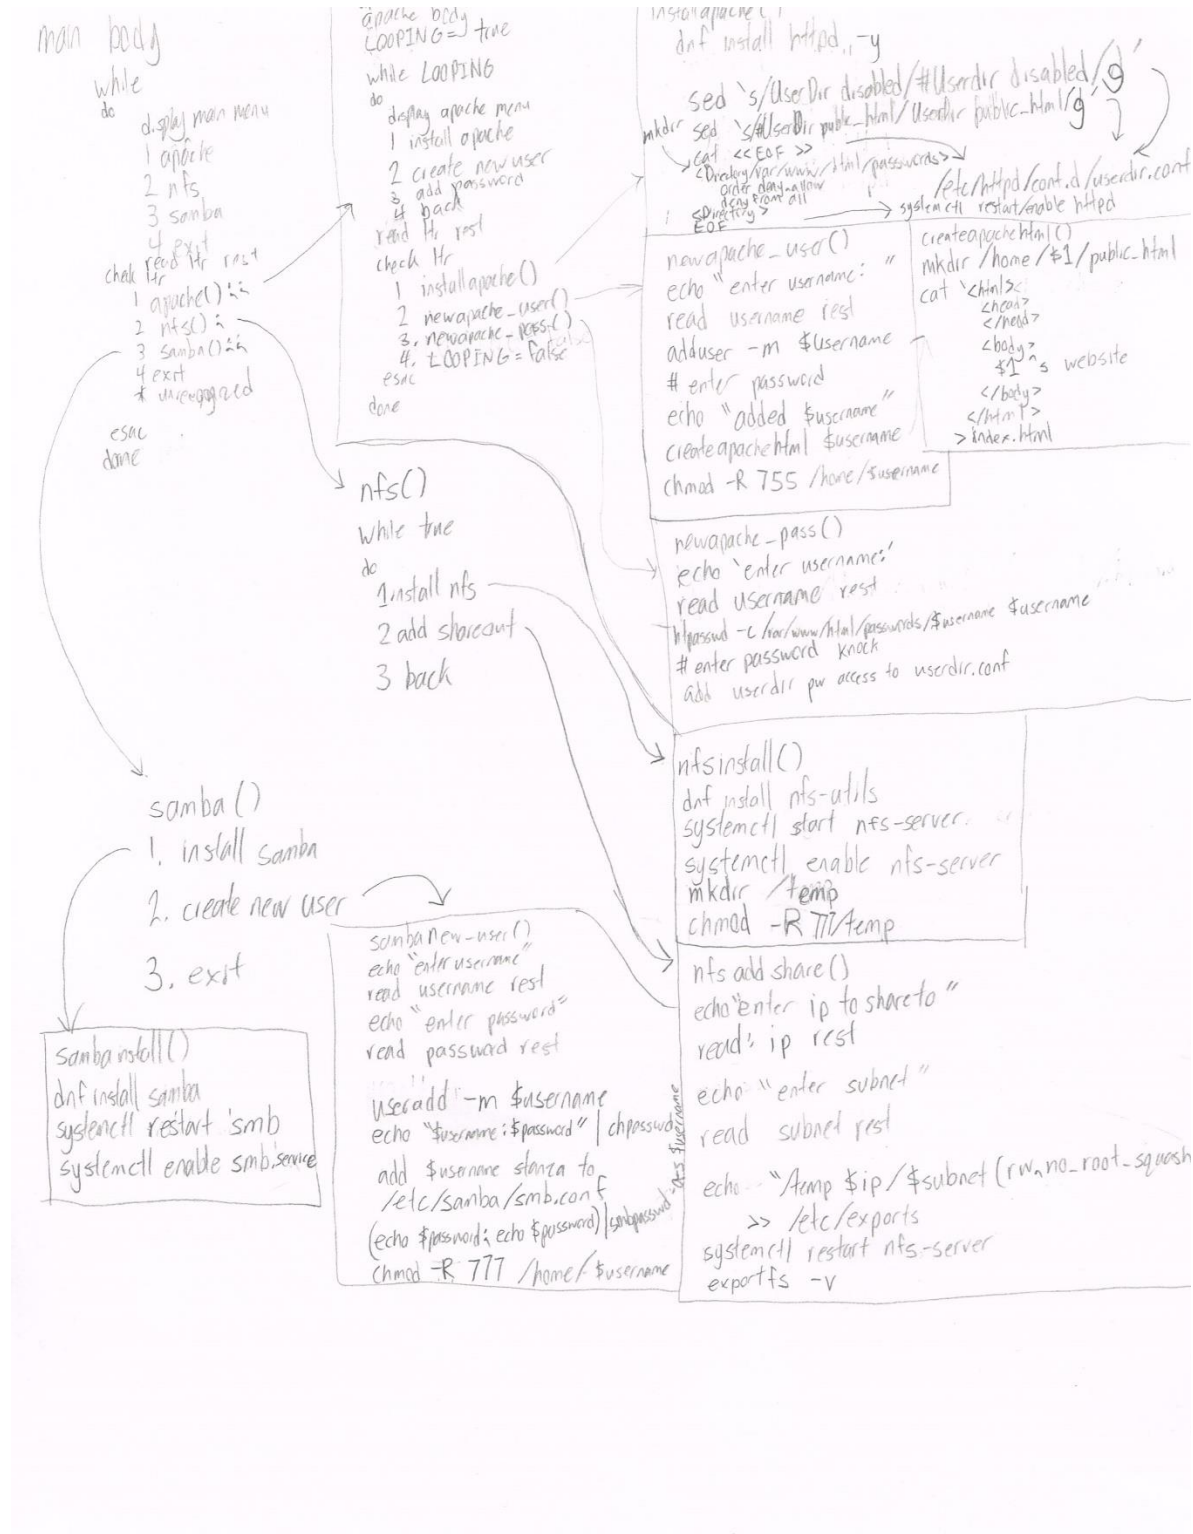 main body
while
do
display main menu
1 apache
2 nfs
3 samba
4 exit
read ltr rest
check ltr
1 apache();;
2 nfs();;
3 samba();;
4 exit
* unrecognized
esac
done
apache body
LOOPING= true
while LOOPING
do
display apache menu
1 install apache
2 create new user
3 add password
4 back
read ltr rest
check ltr
1 installapache()
2 newapache_user()
3. newapache_pass()
4. LOOPING = false
esac
done
installapache()
dnf install httpd -y
sed 's/UserDir disabled/#Userdir disabled/g'
sed 's/#UserDir public_html/UserDir public_html/g'
mkdir
cat <<EOF >>
<Directory/var/www/html/passwords>
order deny-allow
deny from all
EOF
/etc/httpd/conf.d/userdir.conf
systemctl restart/enable httpd
newapache_user()
echo "enter username: "
read username rest
adduser -m $username
# enter password
echo "added $username"
createapachehtml $username
chmod -R 755 /home/$username
createapachehtml()
mkdir /home/$1/public_html
cat '<html>
<head>
</head>
<body>
$1 's website
</body>
</html>
> index.html
newapache_pass()
echo 'enter username:'
read username rest
htpasswd -c /var/www/html/passwords/$username $username
# enter password knock
add userdir pw access to userdir.conf
nfs()
while true
do
1 install nfs
2 add shareout
3 back
nfsinstall()
dnf install nfs-utils
systemctl start nfs-server
systemctl enable nfs-server
mkdir /temp
chmod -R 777/temp
nfs add share()
echo "enter ip to share to"
read: ip rest
echo "enter subnet"
read subnet rest
echo "/temp $ip/$subnet (rw,no_root_squash
>> /etc/exports
systemctl restart nfs-server
exportfs -v
samba()
1. install samba
2. create new user
3. exit
sambainstall()
dnf install samba
systemctl restart smb
systemctl enable smb.service
sambanew-user()
echo "enter username"
read username rest
echo "enter password"
read password rest
useradd -m $username
echo "$username:$password" | chpasswd
add $username stanza to
/etc/samba/smb.conf
(echo $password; echo $password) | smbpasswd $username
chmod -R 777 /home/$username